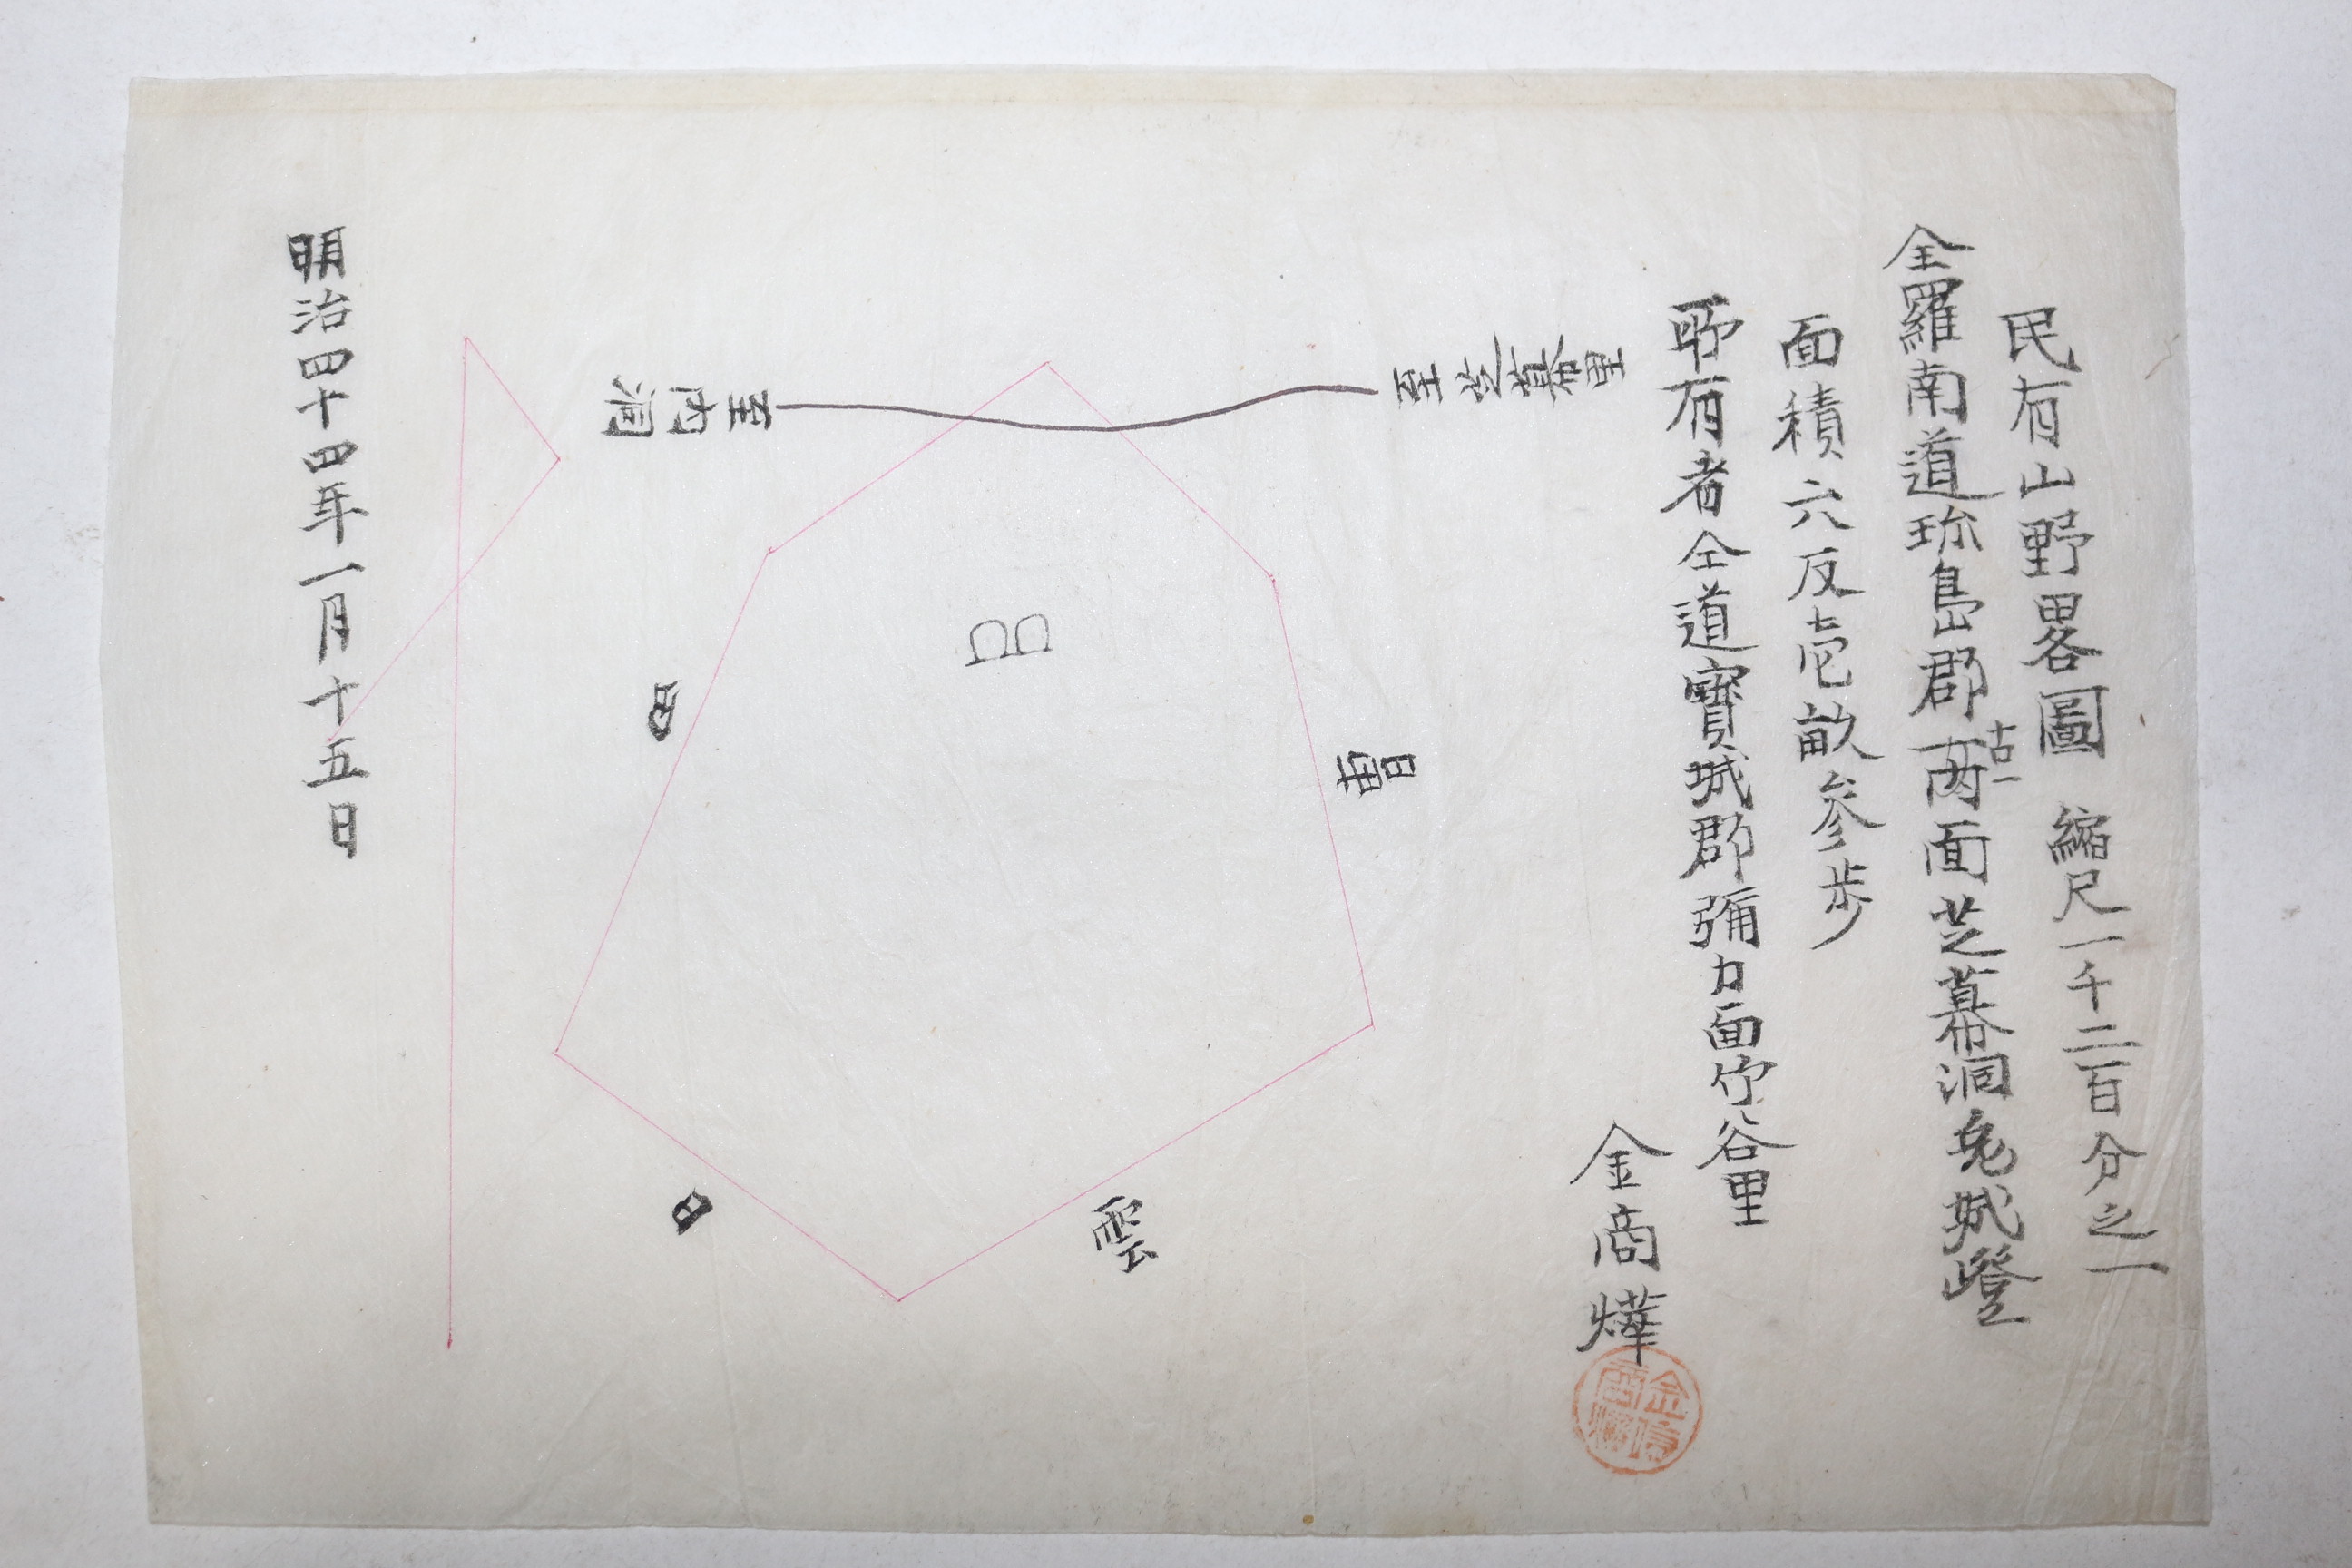 民有山野畧圖 縮尺一千二百分之一
全羅南道珎島郡古一兩面芝幕洞兎城嶝
面積六反壱畝參步
所有者仝道寶城郡彌力面竹谷里
金商燁
至芝幕里
至內洞
B
田
田
雲
明治四十四年一月十五日